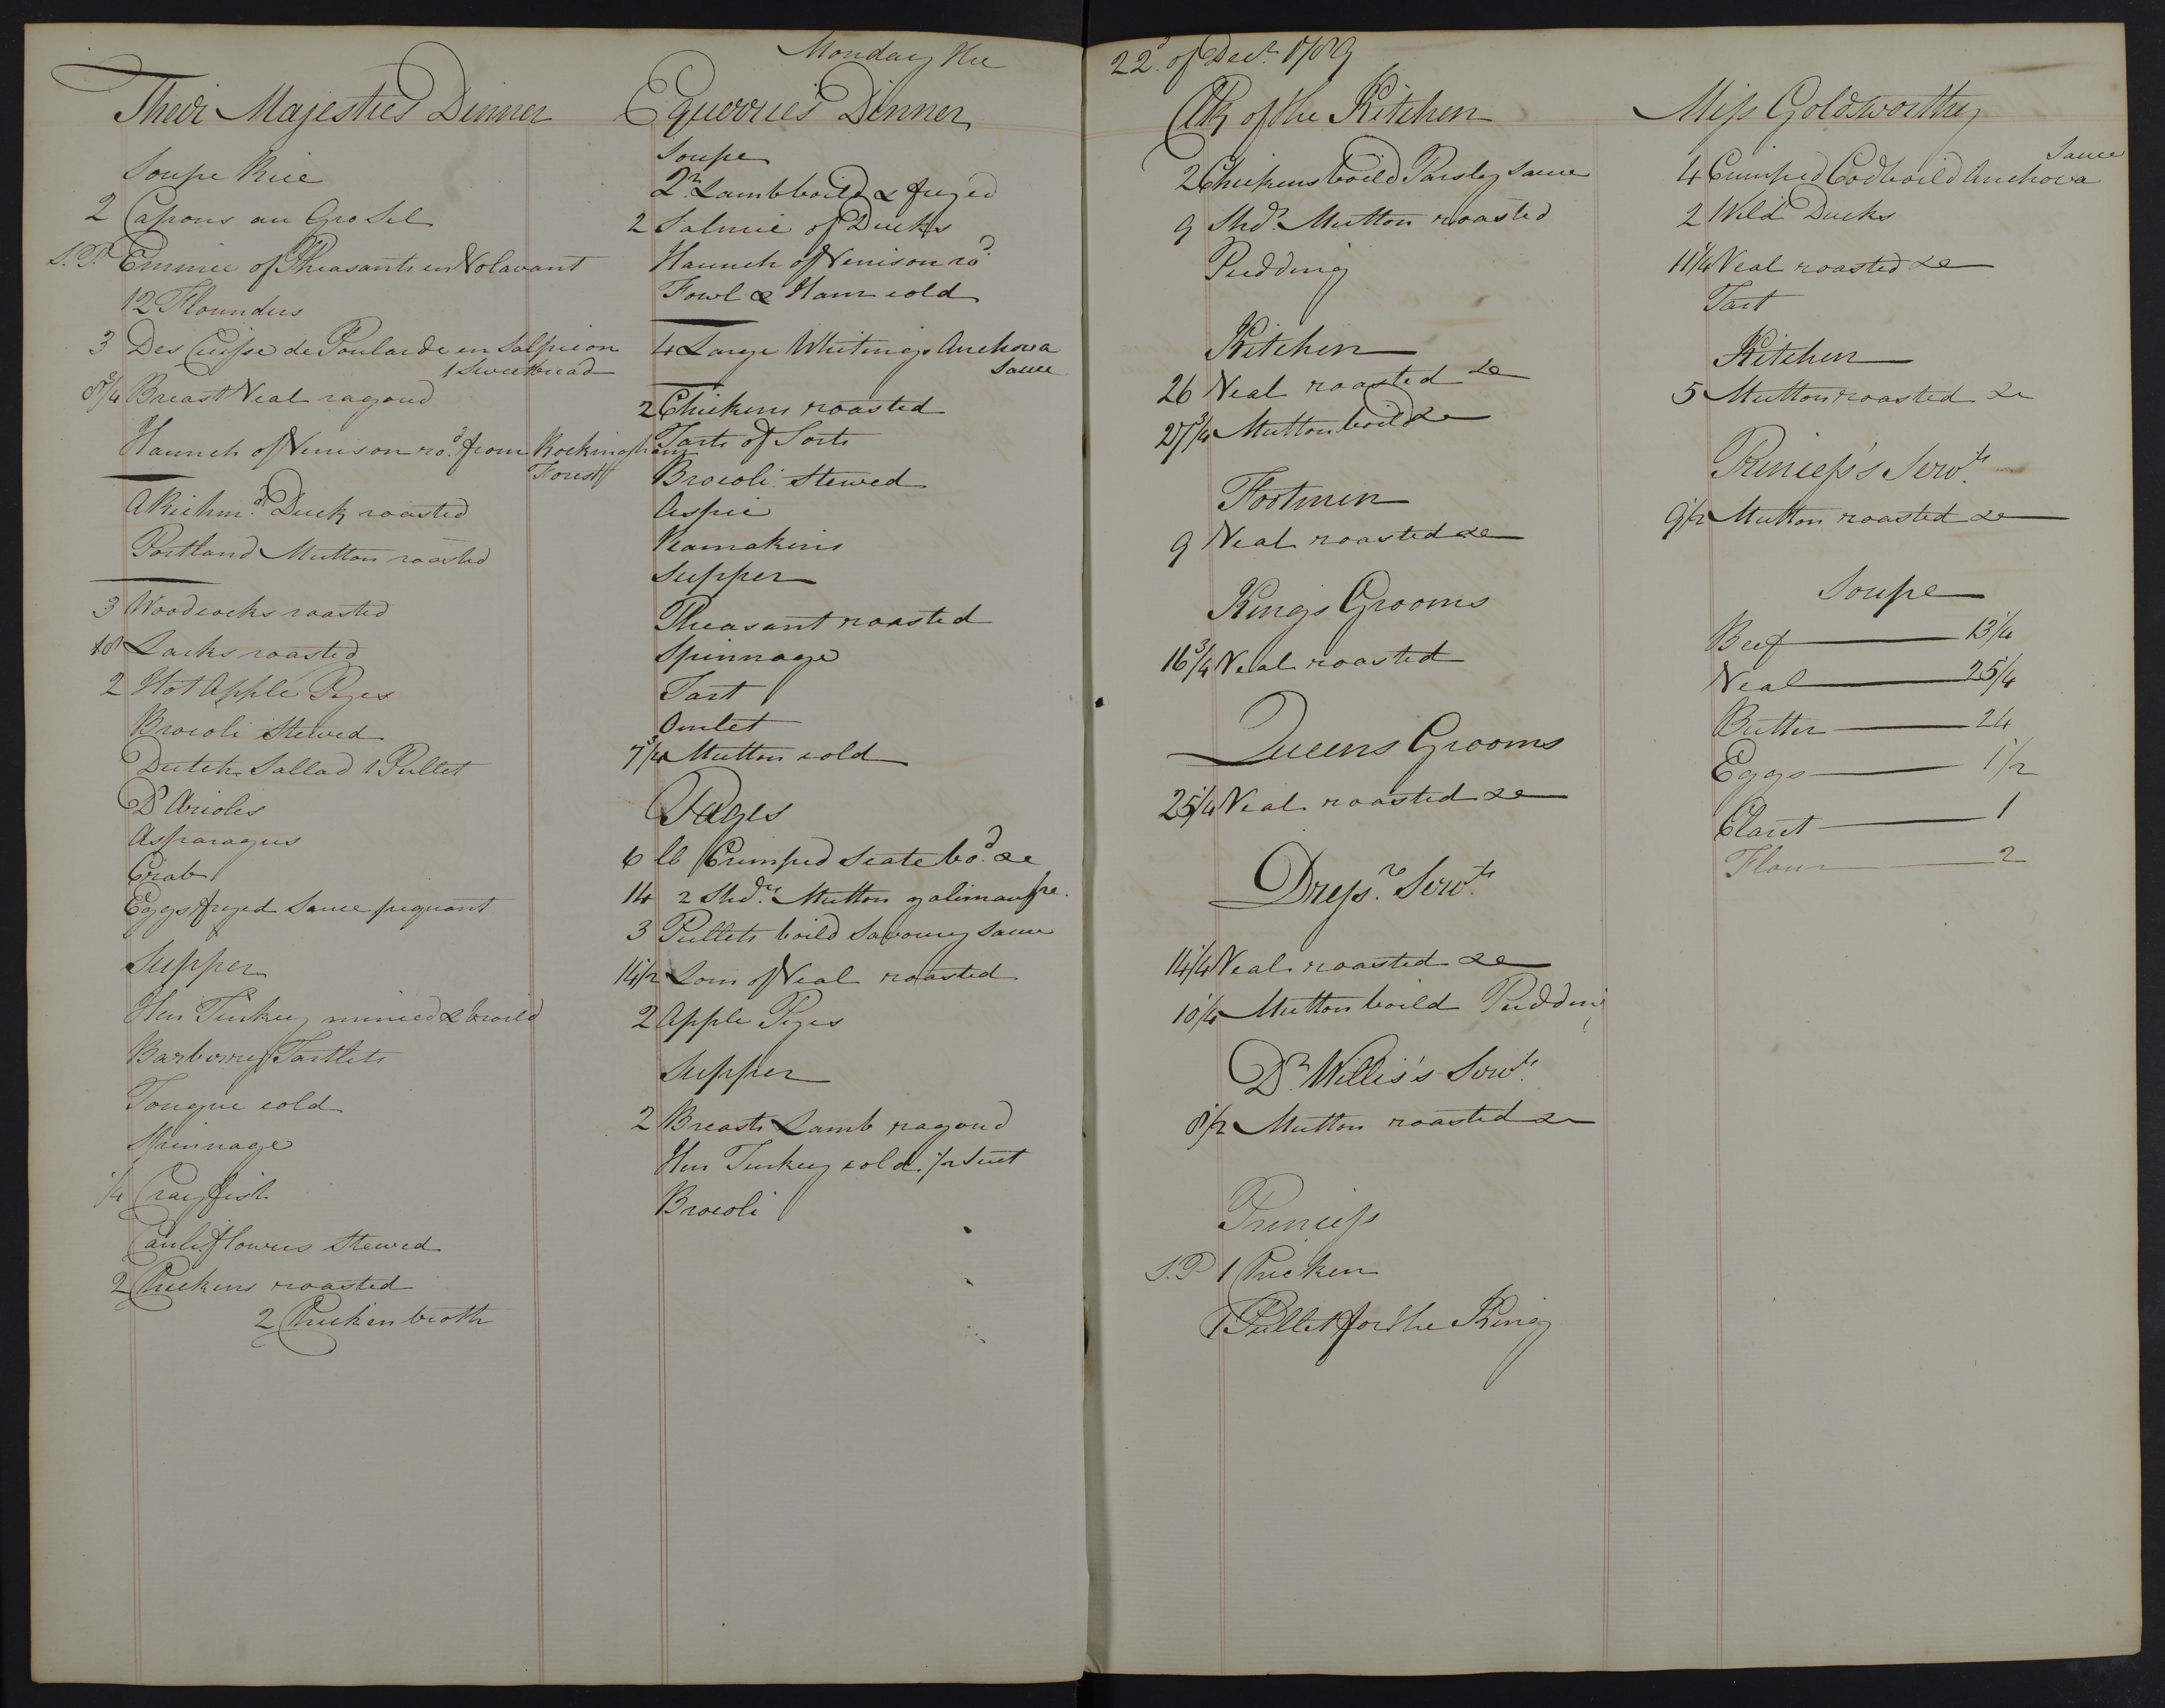 Monday the
Their Majesties Dinner
Soupe Rice
2 Capons au Gro Sel
S.P. Emincé of Pheasants en Volavant
12 Flounders
3 Des Cuisse de Poularde en Salpicon
1 Sweetbread
8 3/4 Breast Veal ragoud
Haunch of Venison ro.d from Rockingham
Forest
A Richm.d Duck roasted
Portland Mutton roasted
3 Woodcocks roasted
18 Larks roasted
2 Hot Apple Pyes
Brocoli Stewed
Dutch Sallad 1 Pullet
D'Arioles
Asparagus
Crab
Eggs fryed Sauce piquant
Supper
Hen Turkey minced & broild
Barberry Tartlets
Tongue cold
Spinnage
1/4 Crayfish
Cauliflowers Stewed
2 Chickens roasted
2 Chicken broth
Equerries Dinner
Soupe
2 Lamb boild & fryed
2 Salmie of Ducks
Haunch of Venison ro.d
Fowl & Ham cold
4 Large Whitings Anchova
Sauce
2 Chickens roasted
Tarts of Sorts
Brocoli Stewed
Aspic
Reamakins
Supper
Pheasant roasted
Spinnage
Tart
Omlet
7 3/4 Mutton cold
Pages
6 lb Crimped Scate bo.d &c
14 2 Shd.rs Mutton galimaufre.
3 Pullets boild Savoury Sauce
14 1/2 Loin of Veal roasted
2 Apple Pyes
Supper
2 Breasts Lamb ragoud
Hen Turkey cold. 1/2 Suet
Brocoli
22.d of Dec.r 1789
Clk of the Kitchen
2 Chickens boild Parsley Sauce
9 Shd.r Mutton roasted
Pudding
Kitchen
26 Veal roasted &c
27 3/4 Mutton boild &c
Footmen
9 Veal roasted &c
Kings Grooms
16 3/4 Veal roasted
Queens Grooms
25 1/4 Veal roasted &c
Dress.rs Serv.ts
14 1/4 Veal roasted &c
10 1/4 Mutton boild Pudding
D.r Willis's Serv.ts
8 1/2 Mutton roasted &c
Princess
S.P 1 Chicken
1 Pullet for the King
Miss Goldsworthy
Sauce
4 Crimped Cod boild Anchova
2 Wild Ducks
11 1/4 Veal roasted &c
Tart
Kitchen
5 Mutton roasted &c
Princess's Serv.ts
9 1/2 Mutton roasted &c
Soupe
Beef 13 1/4
Veal 25 1/4
Butter 24
Eggs 1 1/2
Clart 1
Flour 2